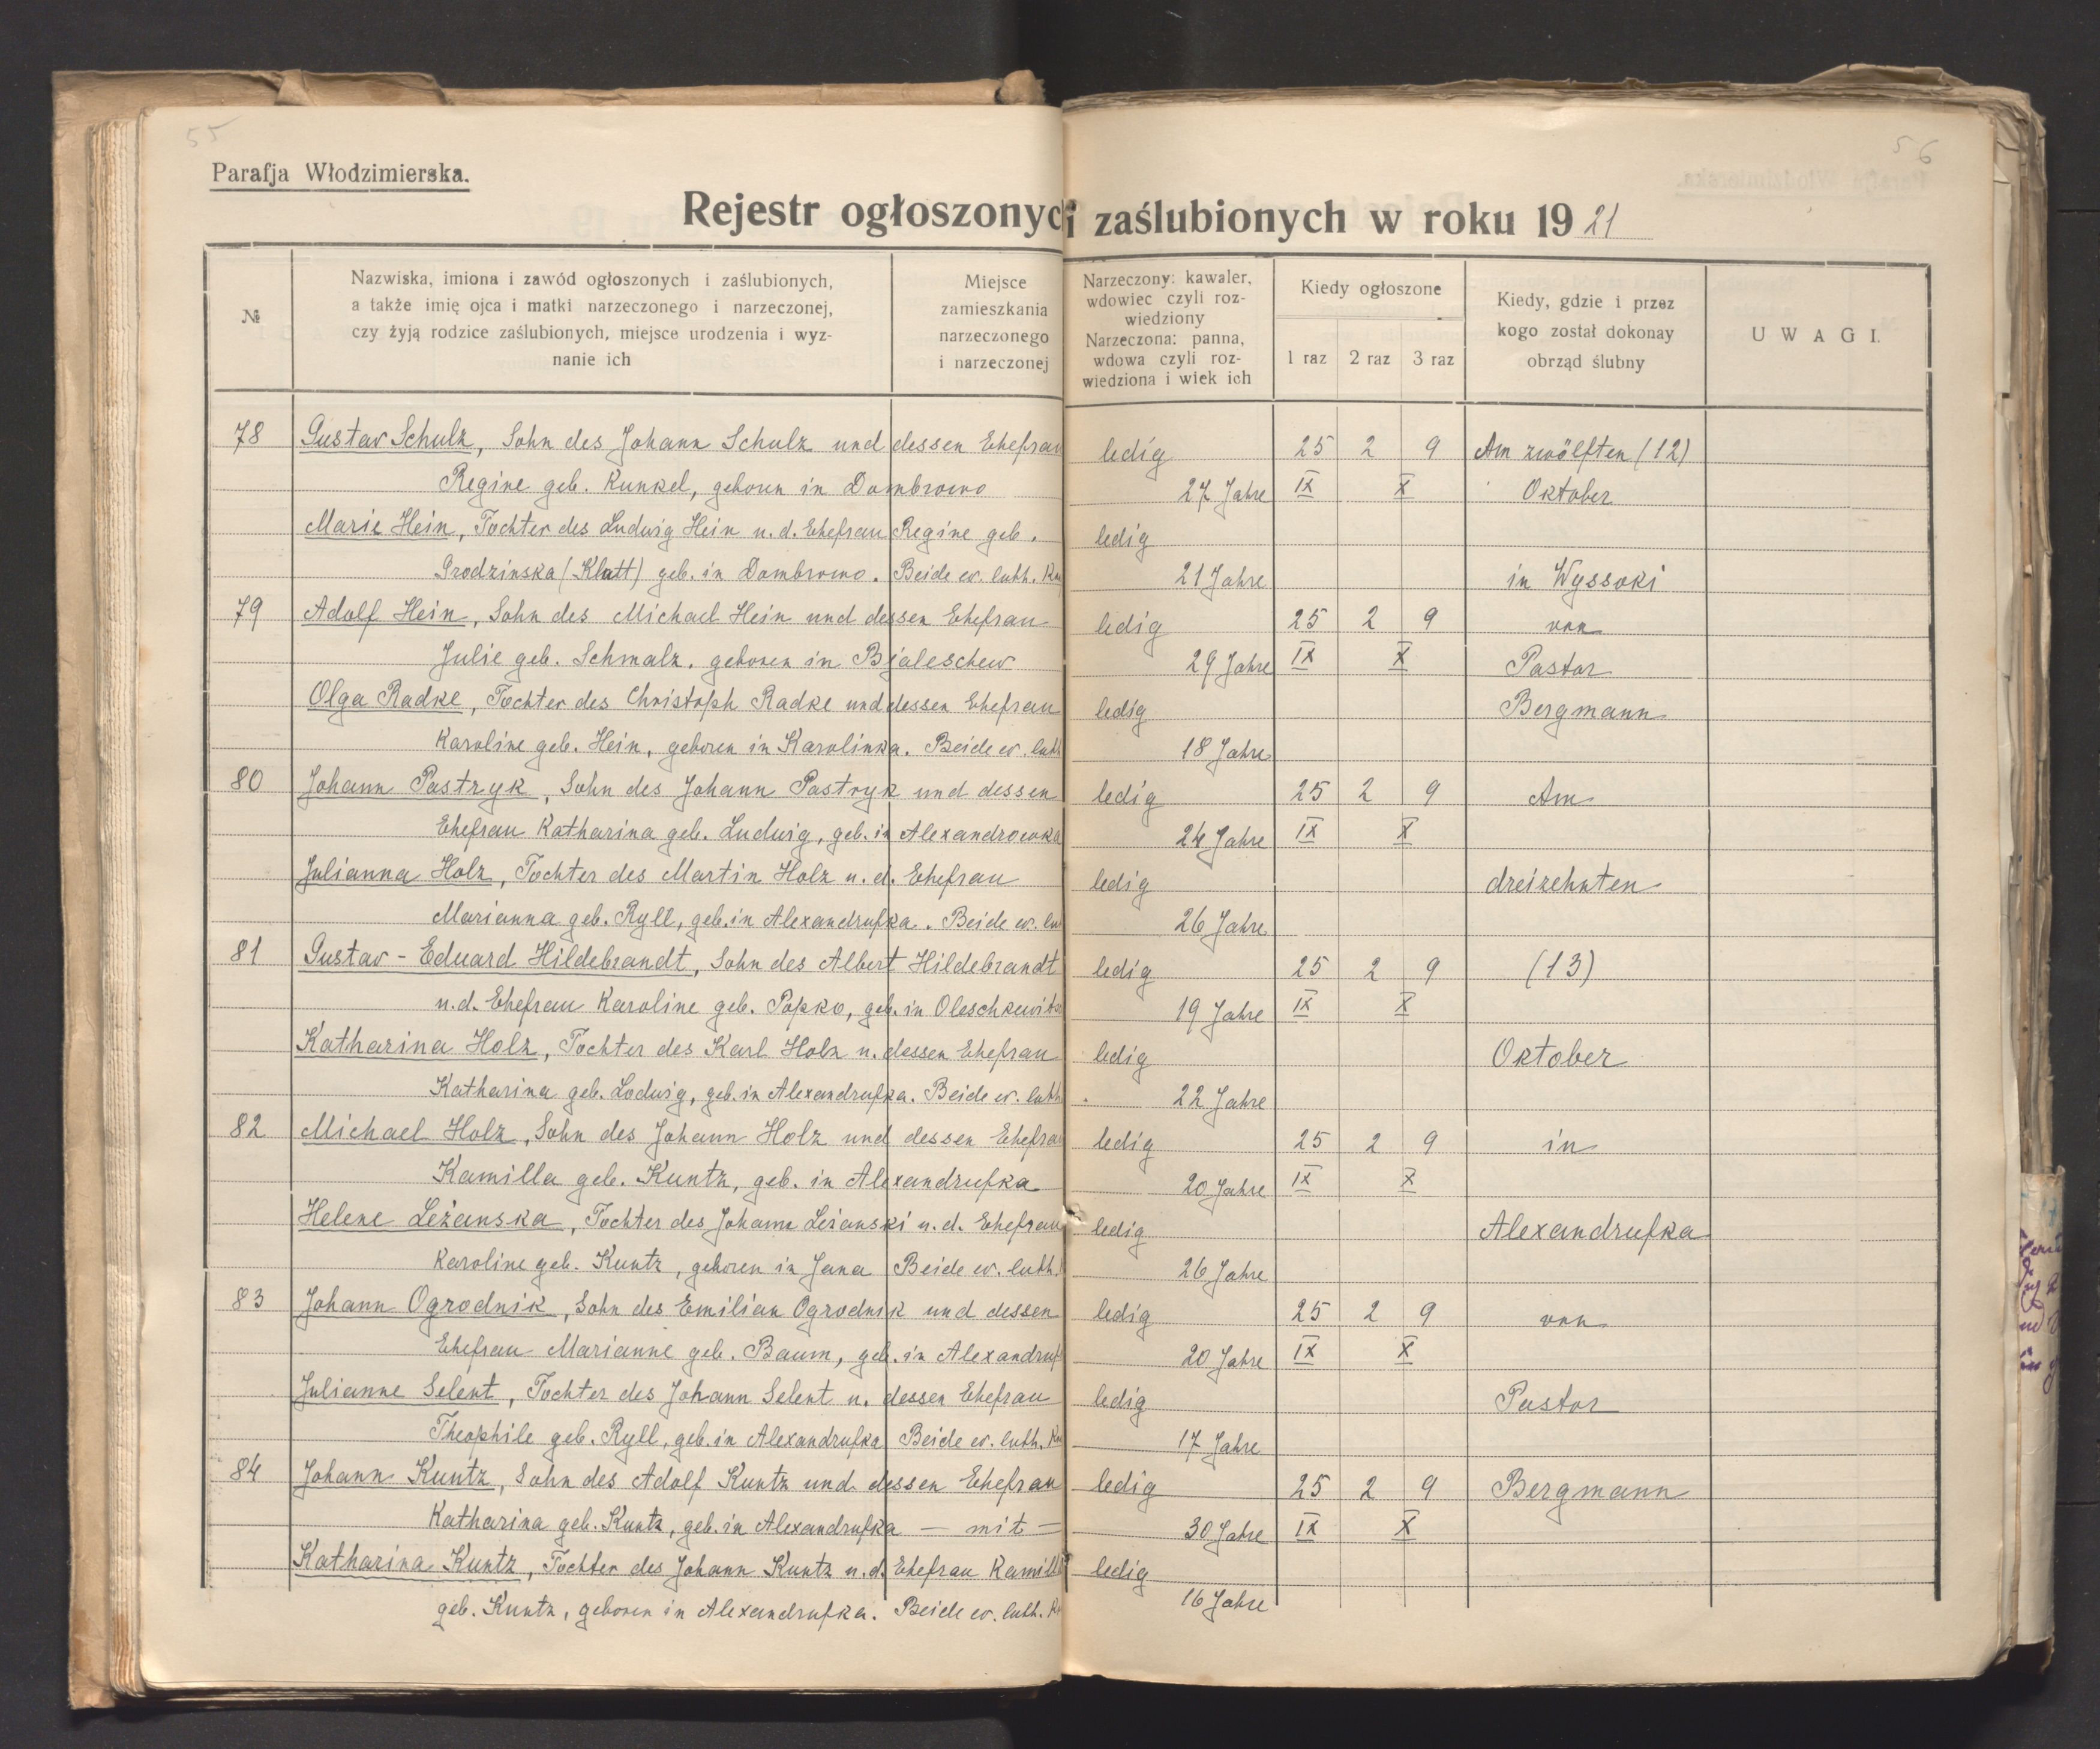 55
56
Parafja Włodzimierska.
Rejestr ogłoszonyc i zaślubionych w roku 1921
№
Nazwiska, imiona i zawód ogłoszonych i zaślubionych,
a także imię ojca i matki narzeczonego i narzeczonej,
czy żyją rodzice zaślubionych, miejsce urodzenia i wyz-
nanie ich
Miejsce
zamieszkania
narzeczonego
i narzeczonej
Narzeczony: kawaler,
wdowiec czyli roz-
wiedziony
Narzeczona: panna,
wdowa czyli roz-
wiedziona i wiek ich
Kiedy ogłoszone
1 raz 2 raz 3 raz
Kiedy, gdzie i przez
kogo został dokonay
obrząd ślubny
UWAGI.
78 Gustav Schulz, Sohn des Johann Schulz und dessen Ehefrau ledig 25 2 9 Am zwölften (12)
Regine geb. Kunkel, geboren in Dombrowo 27 Jahre IX X Oktober
Marie Hein, Tochter des Ludwig Hein u. d. Ehefrau Regine geb. ledig
Grodzinska (Klatt) geb. in Dombrowo. Beide ev. luth. 21 Jahre in Wyssoki
79 Adolf Hein, Sohn des Michael Hein und dessen Ehefrau ledig 25 2 9 von
Julie geb. Schmalz, geboren in Bjaleschew 29 Jahre IX X Pastor
Olga Radke, Tochter des Christoph Radke und dessen Ehefrau ledig Bergmann
Karoline geb. Hein, geboren in Karolinka. Beide ev. luth 18 Jahre
80 Johann Pastryk, Sohn des Johann Pastryk und dessen ledig 25 2 9 Am
Ehefrau Katharina geb. Ludwig, geb. in Alexandrowka 24 Jahre IX X
Julianna Holz, Tochter des Martin Holz u. d. Ehefrau ledig dreizehnten
Marianna geb. Ryll, geb. in Alexandrufka. Beide ev. lu 26 Jahre
81 Gustav - Eduard Hildebrandt, Sohn des Albert Hildebrandt ledig 25 2 9 (13)
u. d. Ehefrau Karoline geb. Popko, geb. in 19 Jahre IX X
Katharina Holz, Tochter des Karl Holz u. dessen Ehefrau ledig Oktober
Katharina geb. Lodwig, geb. in Alexandrufka. Beide ev. luth 22 Jahre
82 Michael Holz, Sohn des Johann Holz und dessen Ehefra ledig 25 2 9 in
Kamilla geb. Kuntz, geb. in Alexandrufka 20 Jahre IX X
Helene Leżanska, Tochter des Johann Leżanski u. d. Ehefrau ledig Alexandrufka
Karoline geb. Kuntz, geboren in Jana Beide ev. luth. 26 Jahre
83 Johann Ogrodnik, Sohn des Emilian Ogrodnik und dessen ledig 25 2 9 von
Ehefrau Marianne geb. Baum, geb. in Alexandruf 20 Jahre IX X
Julianne Selent, Tochter des Johann Selent u. dessen Ehefrau ledig Pastor
Theophile geb. Ryll, geb. in Alexandrufka Beide ev. luth. 17 Jahre
84 Johann Kuntz, Sohn des Adolf Kuntz und dessen Ehefrau ledig 25 2 9 Bergmann
Katharina geb. Kuntz, geb. in Alexandrufka — mit — 30 Jahre IX X
Katharina Kuntz, Tochter des Johann Kuntz u. d. Ehefrau Kamill ledig
geb. Kuntz, geboren in Alexandrufka. Beide ev. luth. 16 Jahre